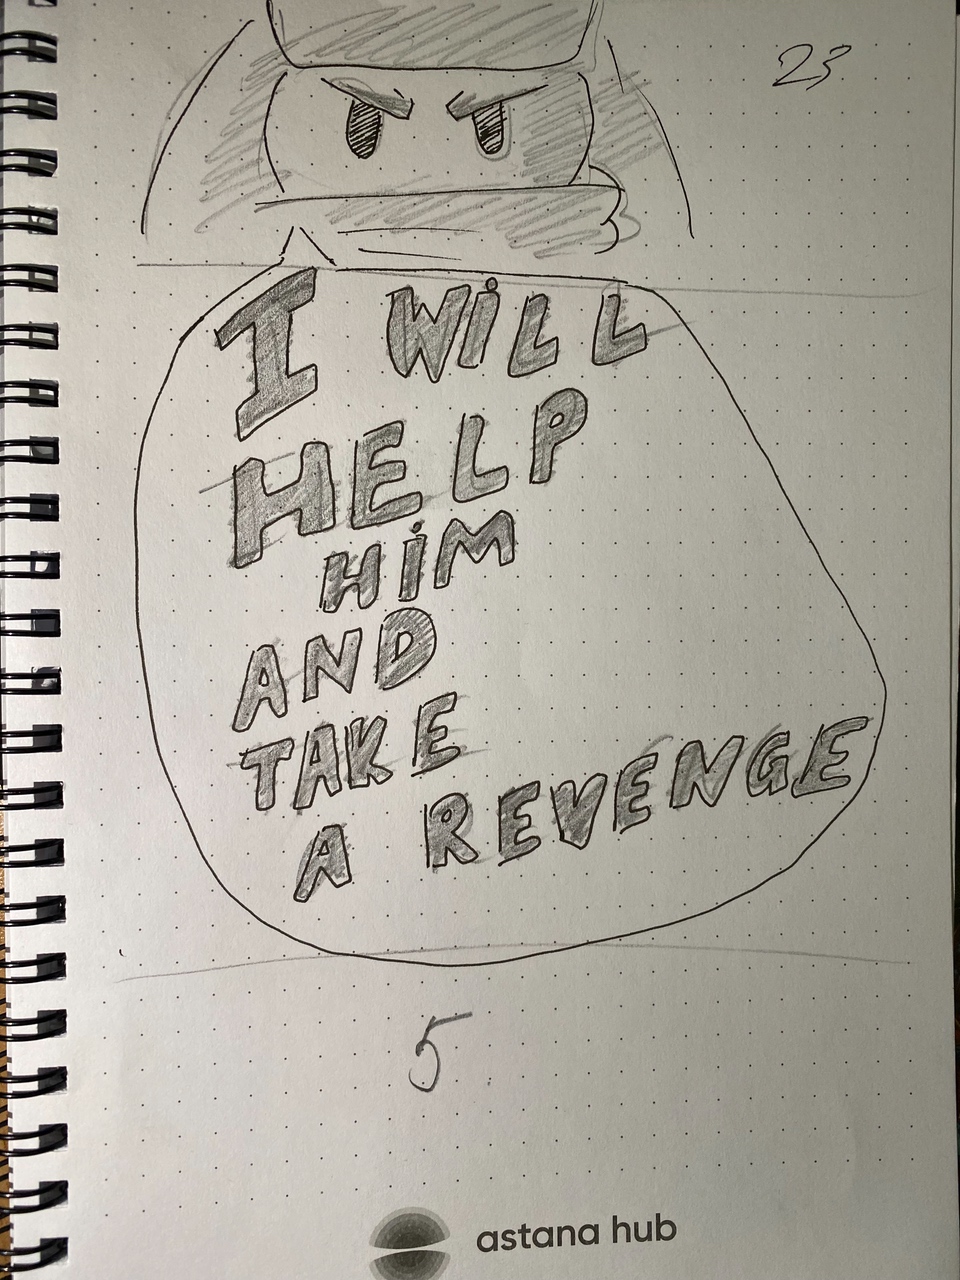 23
I WiLL
HELP
HiM
AND
TAKE
A REVENGE
5
astana hub